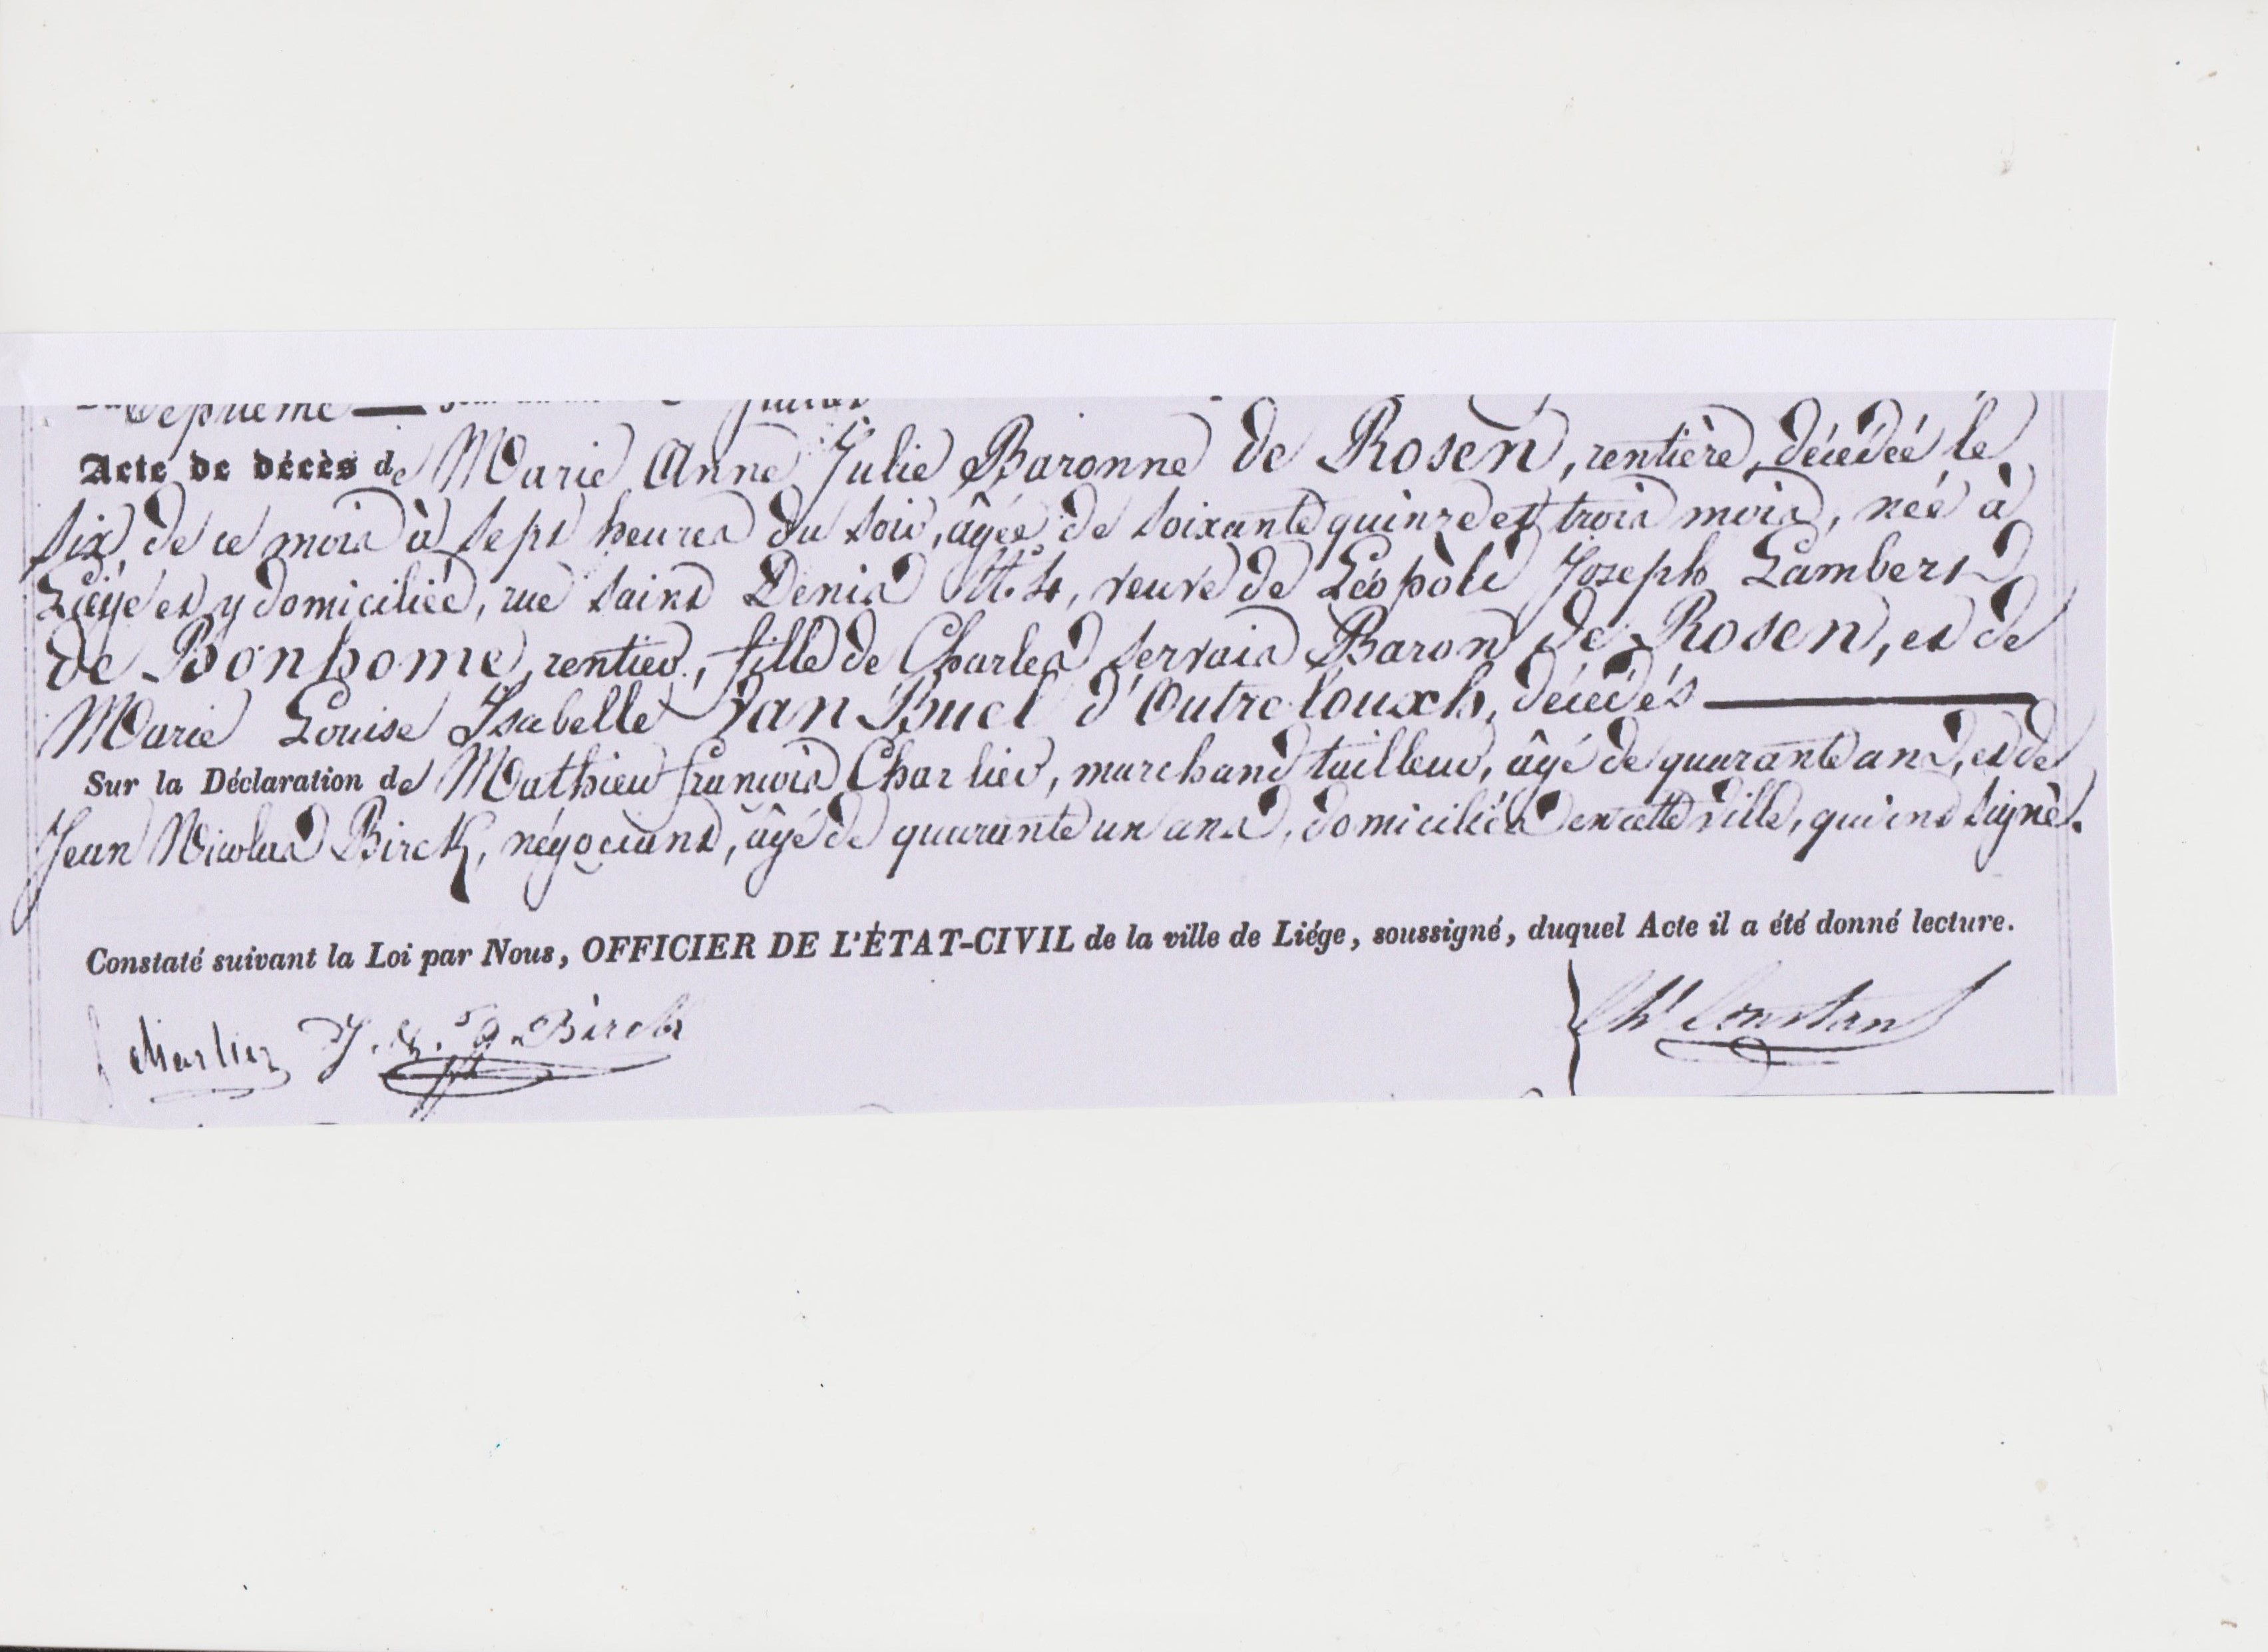 Septième — jour du mois de juillet
Acte de décès de Marie Anne Julie Baronne de Rosen, rentière, décédée le
six de ce mois à sept heures du soir, âgée de soixante quinze et trois mois, née à
Liége et y domiciliée, rue saint Denis N.° 4, veuve de Léopold Joseph Lambert
de Bonhome, rentier, fille de Charles servais Baron de Rosen, et de
Marie Louise Isabelle Van Buel d'Outrelouxh, décédés
Sur la Déclaration de Mathieu françois Charlier, marchand tailleur, âgé de quarante ans, et de
Jean Nicolas Birck, négociant, âgé de quarante un ans, domiciliés en cette ville, qui ont signé.
Constaté suivant la Loi par Nous, OFFICIER DE L'ÉTAT-CIVIL de la ville de Liége, soussigné, duquel Acte il a été donné lecture.
Charlier J. Birck
Constant